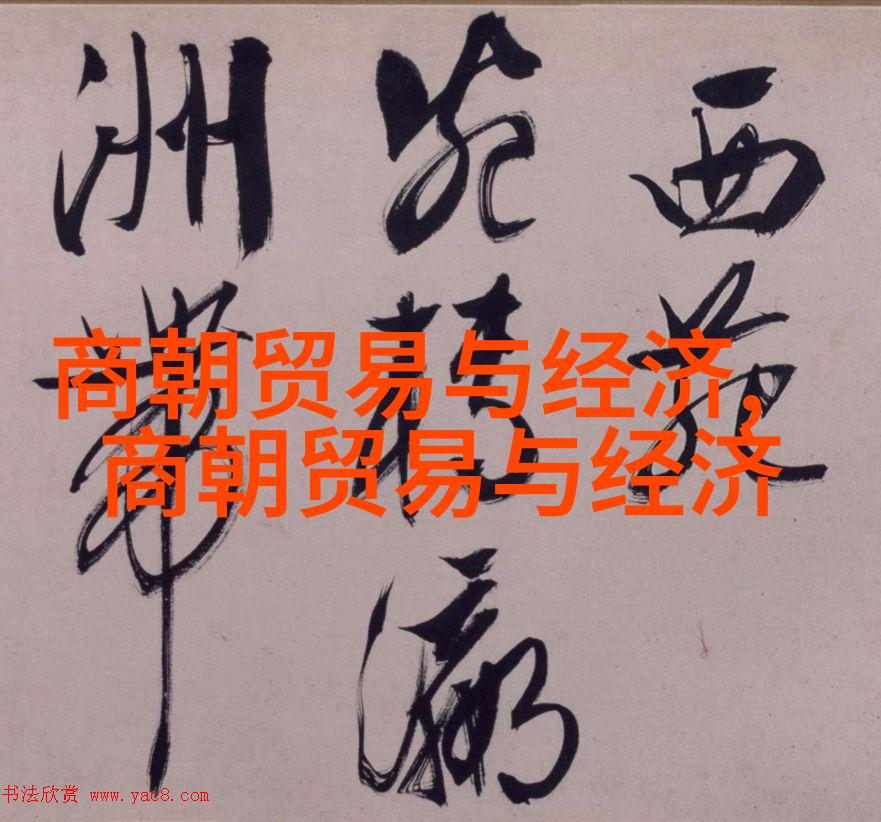 西苑
瀛
洲帶
商朝贸易与经济,
商朝贸易与经济
书法欣赏 www.yac8.com